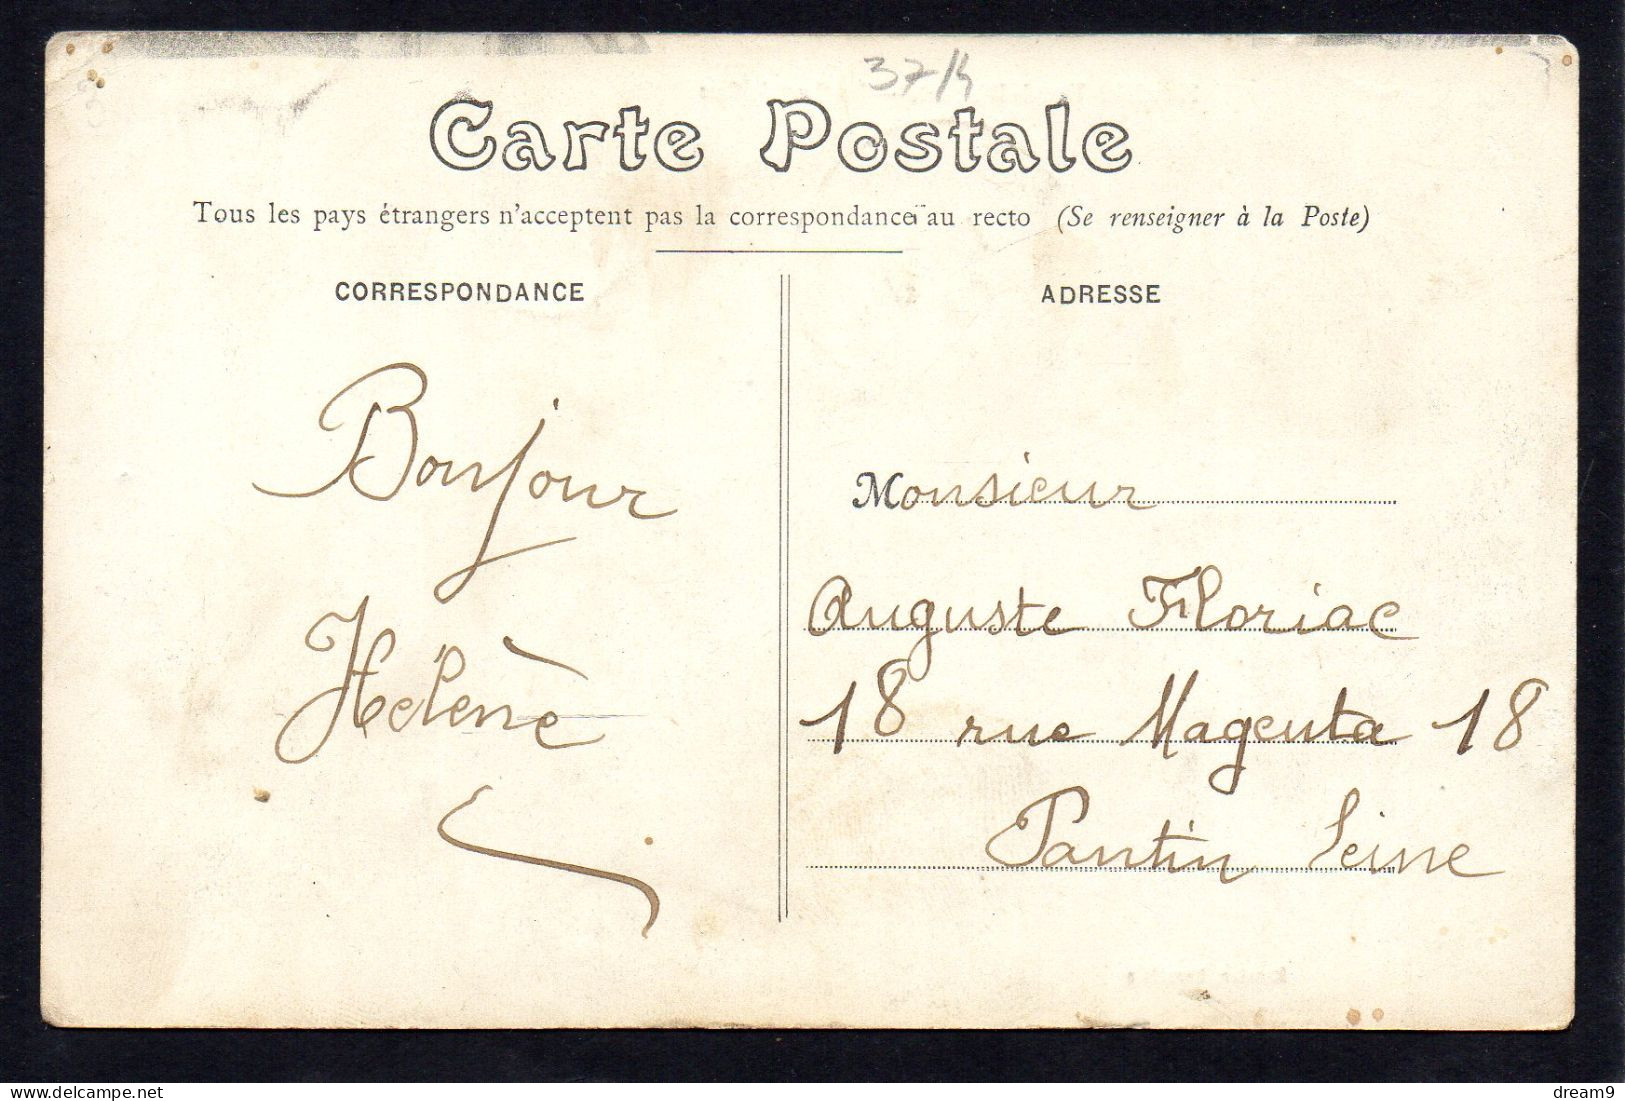 37/4
Carte Postale
Tous les pays étrangers n'acceptent pas la correspondance au recto (Se renseigner à la Poste)
CORRESPONDANCE
Bonjour
Helène
ADRESSE
Monsieur
Auguste Floriac
18 rue Magenta 18
Pantin Seine
delcampe.net
dream9